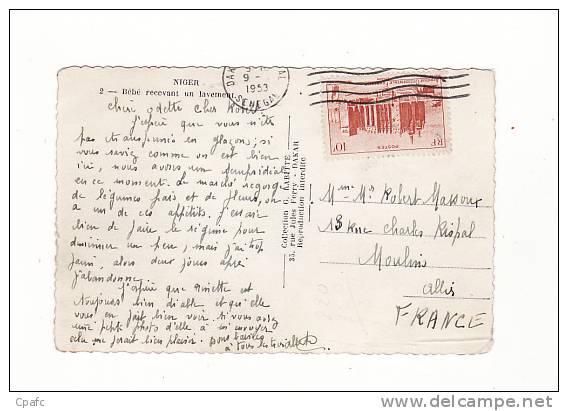 NIGER
2 — Bébé recevant un lavement.
DAKAR
9 -
1953
SENEGAL
Chère Odette Cher Robert
J'espère que vous n'êtes
pas transformés en glaçons; si
vous saviez comme on est bien
ici, nous avons un temps idéal
en ce moment. Le marché regorge
de légumes frais et de fleurs, on
a un de ces appétits. J'essaie
bien de faire le régime pour
diminuer un peu, mais j'ai trop
faim, alors deux jours après
j'abandonne.
J'espère que Ginette est
toujours bien diable et qu'elle
vous en fait bien voir. Si vous avez
une petite photo d'elle à m'envoyer
cela me ferait bien plaisir. bons baisers
à tous les trois
Collection G. LABITTE
35, rue Jules Ferry - DAKAR
Reproduction interdite
POSTES
10F
RF
Mme Mr Robert Massoux
18 Rue Charles Rispal
Moulins
Allier
FRANCE
Cpafc
http://www.delcampe.net